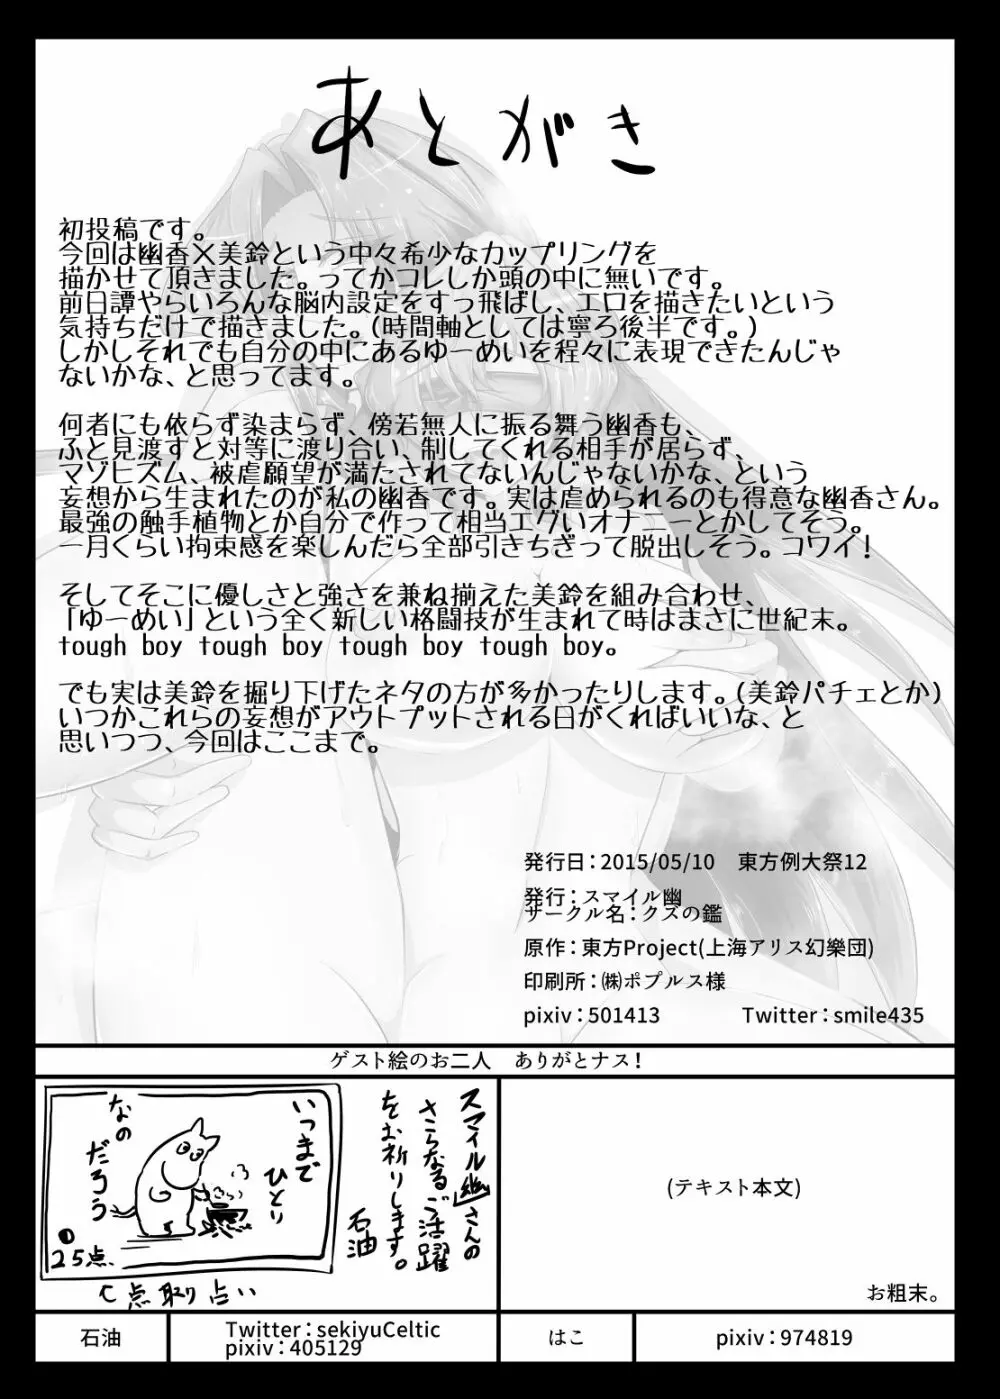 あとがき
初投稿です。
今回は幽香×美鈴という中々希少なカップリングを
描かせて頂きました。ってかコレしか頭の中に無いです。
前日譚やらいろんな脳内設定をすっ飛ばし、エロを描きたいという
気持ちだけで描きました。(時間軸としては寧ろ後半です。)
しかしそれでも自分の中にあるゆーめいを程々に表現できたんじゃ
ないかな、と思ってます。
何者にも依らず染まらず、傍若無人に振る舞う幽香も、
ふと見渡すと対等に渡り合い、制してくれる相手が居らず、
マゾヒズム、被虐願望が満たされてないんじゃないかな、という
妄想から生まれたのが私の幽香です。実は虐められるのも得意な幽香さん。
最強の触手植物とか自分で作って相当エグいオナニーとかしてそう。
一月くらい拘束感を楽しんだら全部引きちぎって脱出しそう。コワイ!
そしてそこに優しさと強さを兼ね揃えた美鈴を組み合わせ、
「ゆーめい」という全く新しい格闘技が生まれて時はまさに世紀末。
tough boy tough boy tough boy tough boy。
でも実は美鈴を掘り下げたネタの方が多かったりします。(美鈴パチェとか)
いつかこれらの妄想がアウトプットされる日がくればいいな、と
思いつつ、今回はここまで。
発行日:2015/05/10 東方例大祭12
発行:スマイル幽
サークル名:クズの鑑
原作:東方Project(上海アリス幻樂団)
印刷所:㈱ポプルス様
pixiv:501413 Twitter:smile435
ゲスト絵のお二人 ありがとナス!
いつまで
ひとり
なの
だろう
25点、
←点取り占い
スマイル幽さんの
さらなるご活躍
をお祈りします。
石油
(テキスト本文)
お粗末。
石油
Twitter:sekiyuCeltic
pixiv:405129
はこ
pixiv:974819